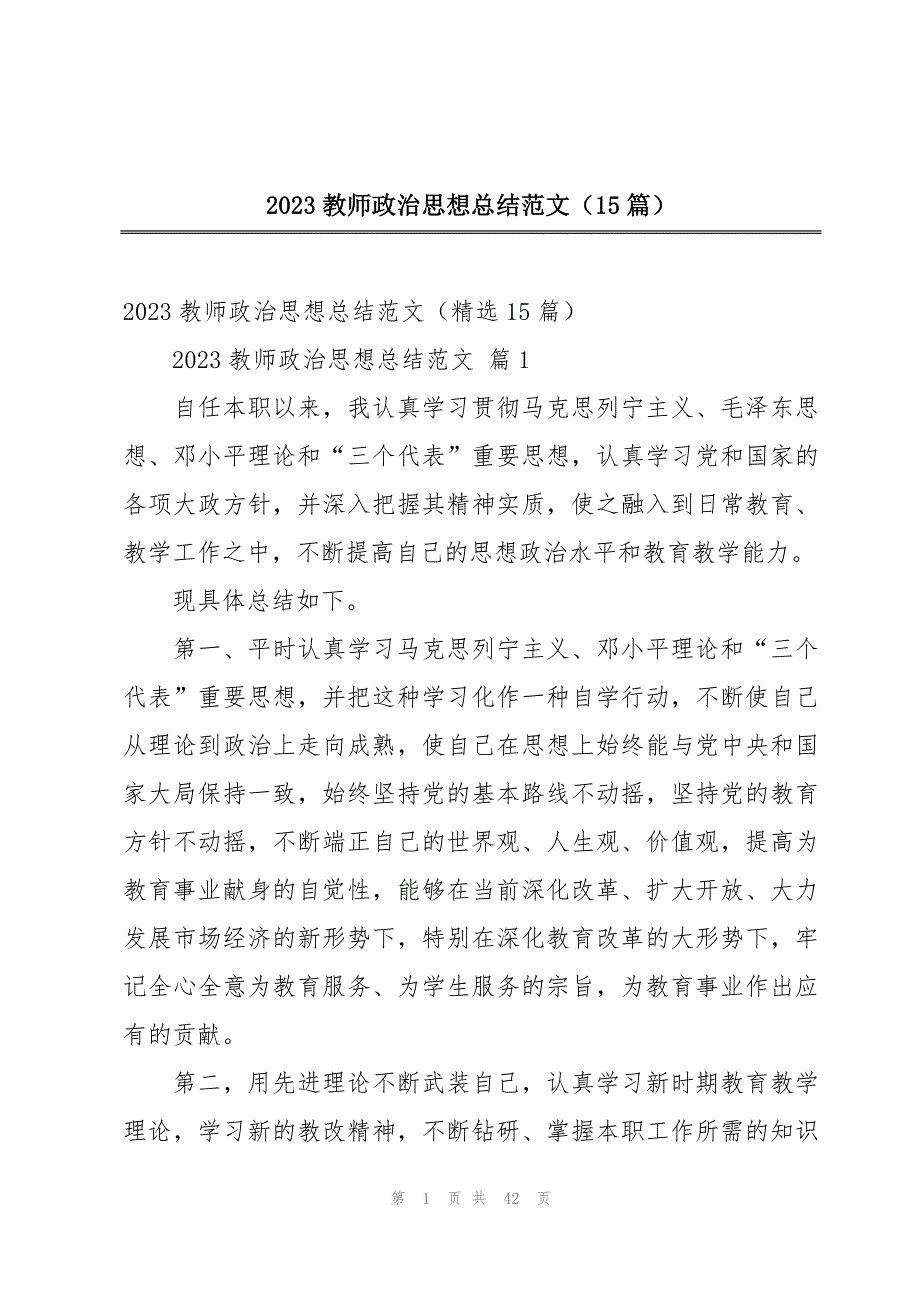 2023教师政治思想总结范文（15篇）
2023教师政治思想总结范文（精选15篇）
2023教师政治思想总结范文 篇1
自任本职以来，我认真学习贯彻马克思列宁主义、毛泽东思
想、邓小平理论和“三个代表”重要思想，认真学习党和国家的
各项大政方针，并深入把握其精神实质，使之融入到日常教育、
教学工作之中，不断提高自己的思想政治水平和教育教学能力。
现具体总结如下。
第一、平时认真学习马克思列宁主义、邓小平理论和“三个
代表”重要思想，并把这种学习化作一种自学行动，不断使自己
从理论到政治上走向成熟，使自己在思想上始终能与党中央和国
家大局保持一致，始终坚持党的基本路线不动摇，坚持党的教育
方针不动摇，不断端正自己的世界观、人生观、价值观，提高为
教育事业献身的自觉性，能够在当前深化改革、扩大开放、大力
发展市场经济的新形势下，特别在深化教育改革的大形势下，牢
记全心全意为教育服务、为学生服务的宗旨，为教育事业作出应
有的贡献。
第二，用先进理论不断武装自己，认真学习新时期教育教学
理论，学习新的教改精神，不断钻研、掌握本职工作所需的知识
第 1 页 共 42 页